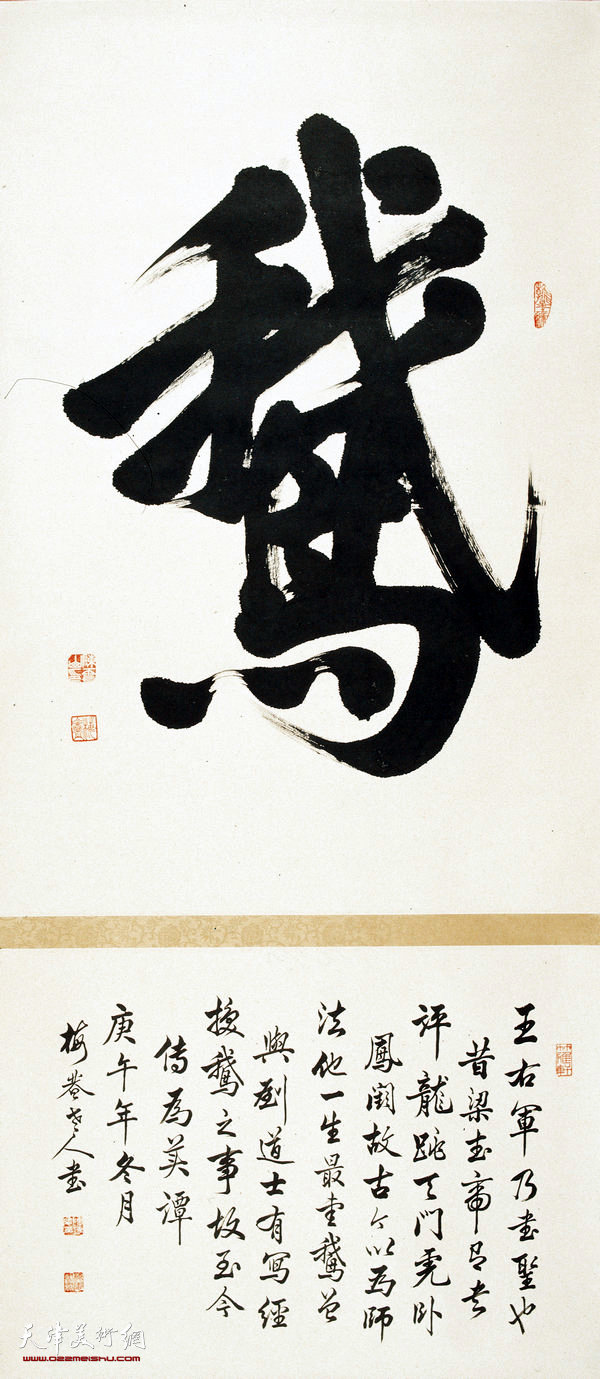 鵝
王右軍乃書聖也
昔梁武帝
評龍跳天門虎卧
鳳闕故古今以為師
法他一生最愛鵝曾
與劉道士有寫經
換鵝之事故至今
傳為美譚
庚午年冬月
梅菴老人書
天津美術網
www.022meishu.com